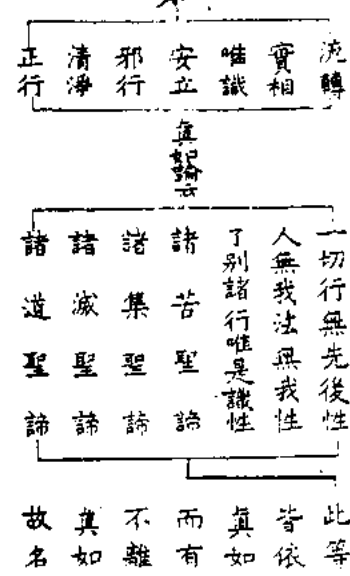 流轉
實相
唯識
安立
邪行
清淨
正行
真如論云
一切行無先後性
人無我法無我性
了別諸行唯是識性
諸苦聖諦
諸集聖諦
諸滅聖諦
諸道聖諦
此等
皆依
真如
而有
不離
真如
故名